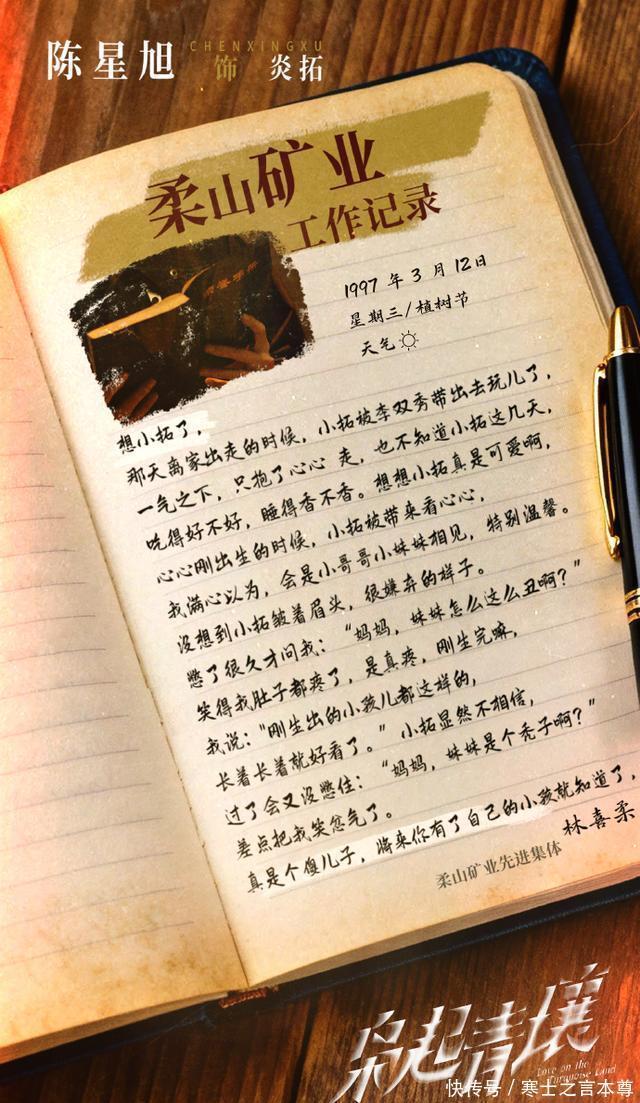 陈星旭
CHENXINGXU
饰
炎拓
柔山矿业
工作记录
1997 年 3 月 12日
星期三/植树节
天气
想小拓了，
那天离家出走的时候，小拓被李双秀带出去玩儿了，
一气之下，只抱了心心 走，也不知道小拓这几天，
吃得好不好，睡得香不香。想想小拓真是可爱啊，
心心刚出生的时候，小拓被带来看心心，
我满心以为，会是小哥哥小妹妹相见，特别温馨。
没想到小拓皱着眉头，很嫌弃的样子。
憋了很久才问我：“妈妈，妹妹怎么这么丑啊？”
笑得我肚子都疼了，是真疼，刚生完嘛，
我说：“刚生出的小孩儿都这样的，
长着长着就好看了。”小拓显然不相信，
过了会又没憋住：“妈妈，妹妹是个秃子啊？”
差点把我笑岔气了。
真是个傻儿子，将来你有了自己的小孩就知道了，
林喜柔
柔山矿业先进集体
枭起青壤
Love on the
Turquoise Land
快传号／寒士之言本尊